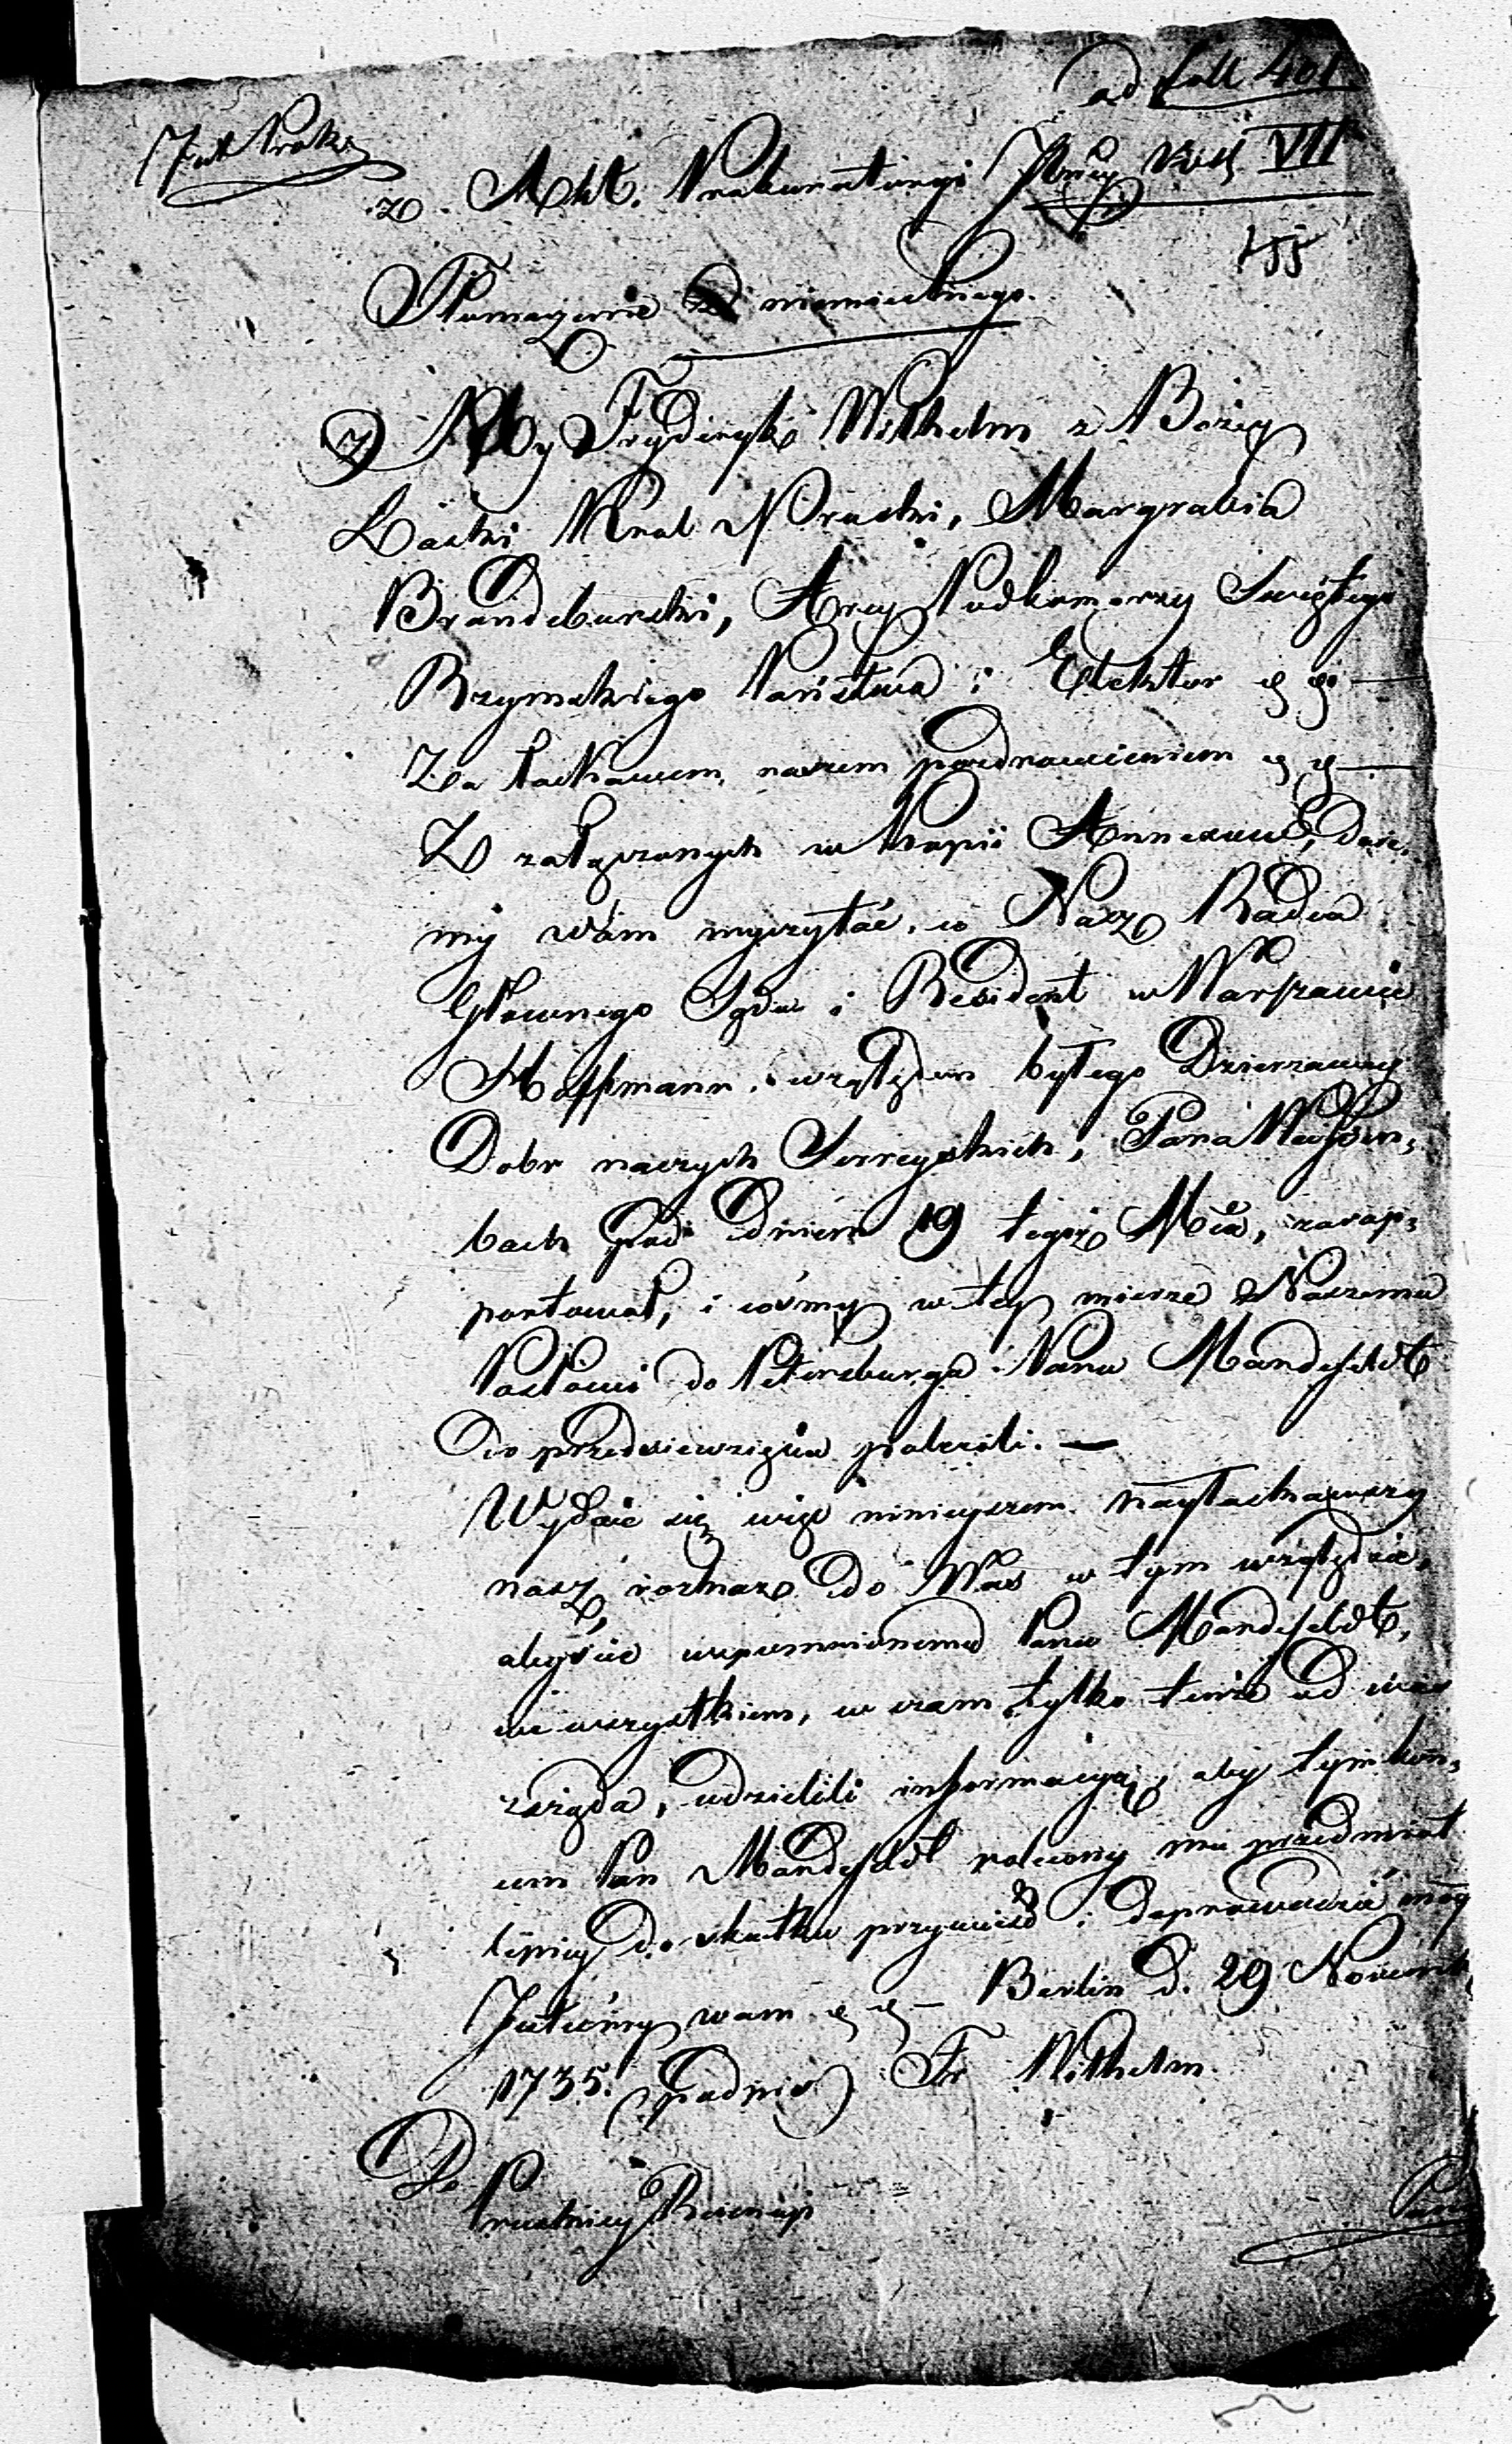 ad fall 401
z Akt. Prokuratoryi Vol. VII
Tłumaczenie z niemieckiego.
7) My Fryderyk Wilhelm z Bożey
Łaski Król Pruski, Margrabia
Brandeburski, Arcy Podkomorzy Swiętego
Rzymskiego Państwa i Elektor
Za łaskawem naszem pozdrowieniem
Z załączonych w Kopii Annexow, daie,
my wám wyczytać, co Nasz Radca
Głownego Sądu i Resident w Warszawie
Hoffmann względem byłego Dzierzawcy
Dobr naszych Serreyskich, Pana
bach pod Dniem 19 tegoż Mca, zarap,
portował, i cośmy w tey mierze Naszemu
Posłowi do Petersburga Panu Mardefeldt
do przedsiewzięcia polecili. —
Wydaie się więc ninieyszem nayłaskawszy
nasz rozkaz do Was w tym względzie,
abyście wspomnionemu Panu Mardefeldt,
we wszystkiem, w czem tylko tenże od was
zażąda, udzielili informacyą, aby tym koń,
cem Pan Mardefeldt zalecony mu przedmiot
lepiey do skutku przywieść i doprowadzić mógł
Jesteśmy wam — Berlin d. 29 Novemb
1735. (podpis) Fr Wilhelm.
Do
Pruskiey Rejencyi